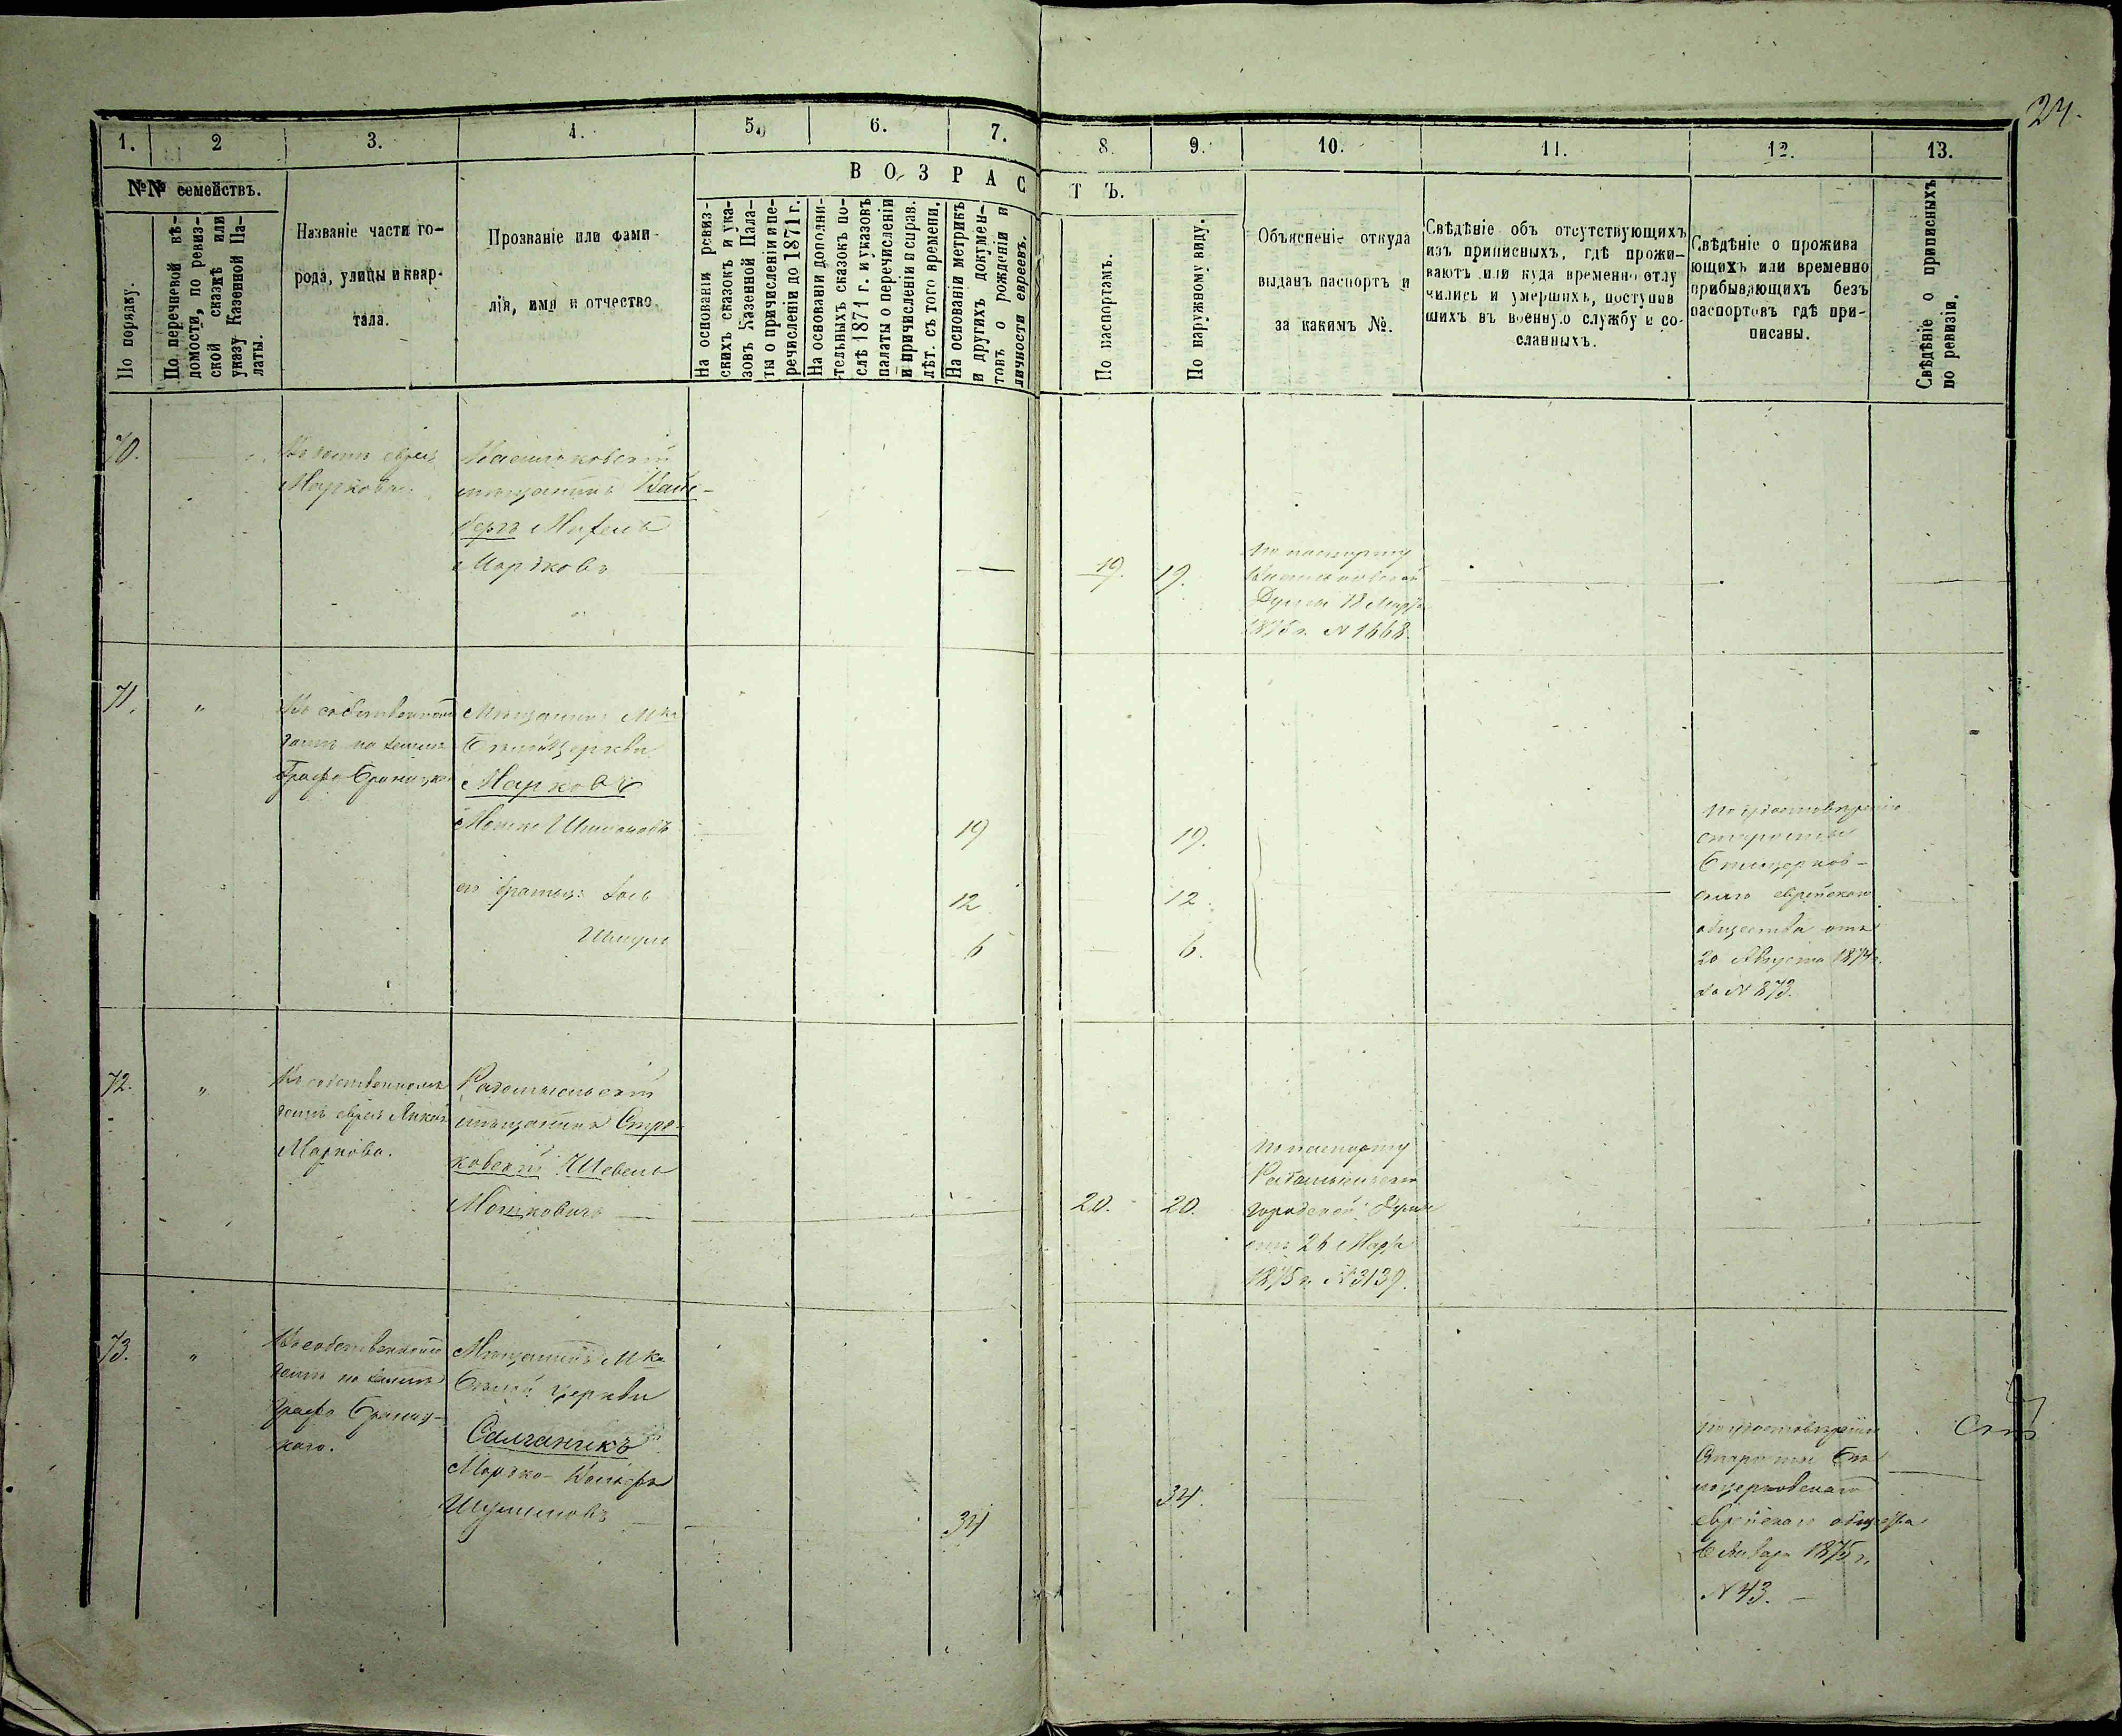 24.
1.
2
3.
4.
5.
6.
7.
8.
9.
10.
11.
12.
13.
№№ семействъ.
По порядку.
По перечневой вѣ-
домости, по ревиз-
ской сказкѣ или
указу Казенной Па-
латы.
Названіе части го-
рода, улицы и квар-
тала.
Прозваніе или фами-
лія, имя и отчество
ВОЗРАС
ТЪ.
На основаніи ревиз-
скихъ сказокъ и ука-
зовъ Казенной Пала-
ты о причисленіи и пе-
речисленіи до 1871 г.
На основаніи дополни-
тельныхъ сказокъ по-
слѣ 1871 г. и указовъ
палаты о перечисленіи
и причисленіи и справ.
лѣт. съ того времени.
На основаніи метрикъ
и другихъ докумен-
товъ о рожденіи и
личности евреевъ.
По паспортамъ.
По наружному виду.
Объясненіе откуда
выданъ паспортъ и
за какимъ №.
Свѣдѣніе объ отсутствующихъ
изъ приписныхъ, гдѣ прожи-
ваютъ или куда временно отлу
чились и умершихъ, поступив
шихъ въ военную службу и со-
сланныхъ.
Свѣдѣніе о прожива
ющихъ или временно
прибывающихъ безъ
паспортовъ гдѣ при-
писаны.
Свѣдѣніе о приписныхъ
по ревизіи.
70.
Въ домѣ еврея
Маркова.
Васильковскій
мѣщанинъ Вайс-
бергъ
Мордковъ
19.
19.
По паспорту
Васильковской
Думы 18 Марта
1875 г. N 1668.
71.
"
Въ собственномъ
домѣ на землѣ
Графа Браницка
Мѣщанинъ Мка
Бѣлой Церкви
Марковъ
Мошко
его братья:
Шмуль
19
12
6
19.
12.
6.
По удостовѣренію
старосты
Бѣлоцерков-
скаго еврейскаго
общества отъ
20 Августа 1874 г.
за N 873.
72.
"
Въ собственномъ
домѣ еврея
Маркова.
Радомысльскій
мѣщанинъ Стра-
ковскій Шевель
Мошковичъ
20.
20.
По паспорту
Радомысльской
городской Думы
отъ 26 Марта
1875 г. N 3139.
73.
"
Въ собственномъ
домѣ на землѣ
Графа Браниц-
каго.
Мѣщанинъ Мка
Бѣлой Церкви
Салганикъ
Мордко-
Шулимовъ
34
34.
По удостовѣренію
Старосты Бѣ
лоцерковскаго
еврейскаго общества
Января 1875 г.
N 43.